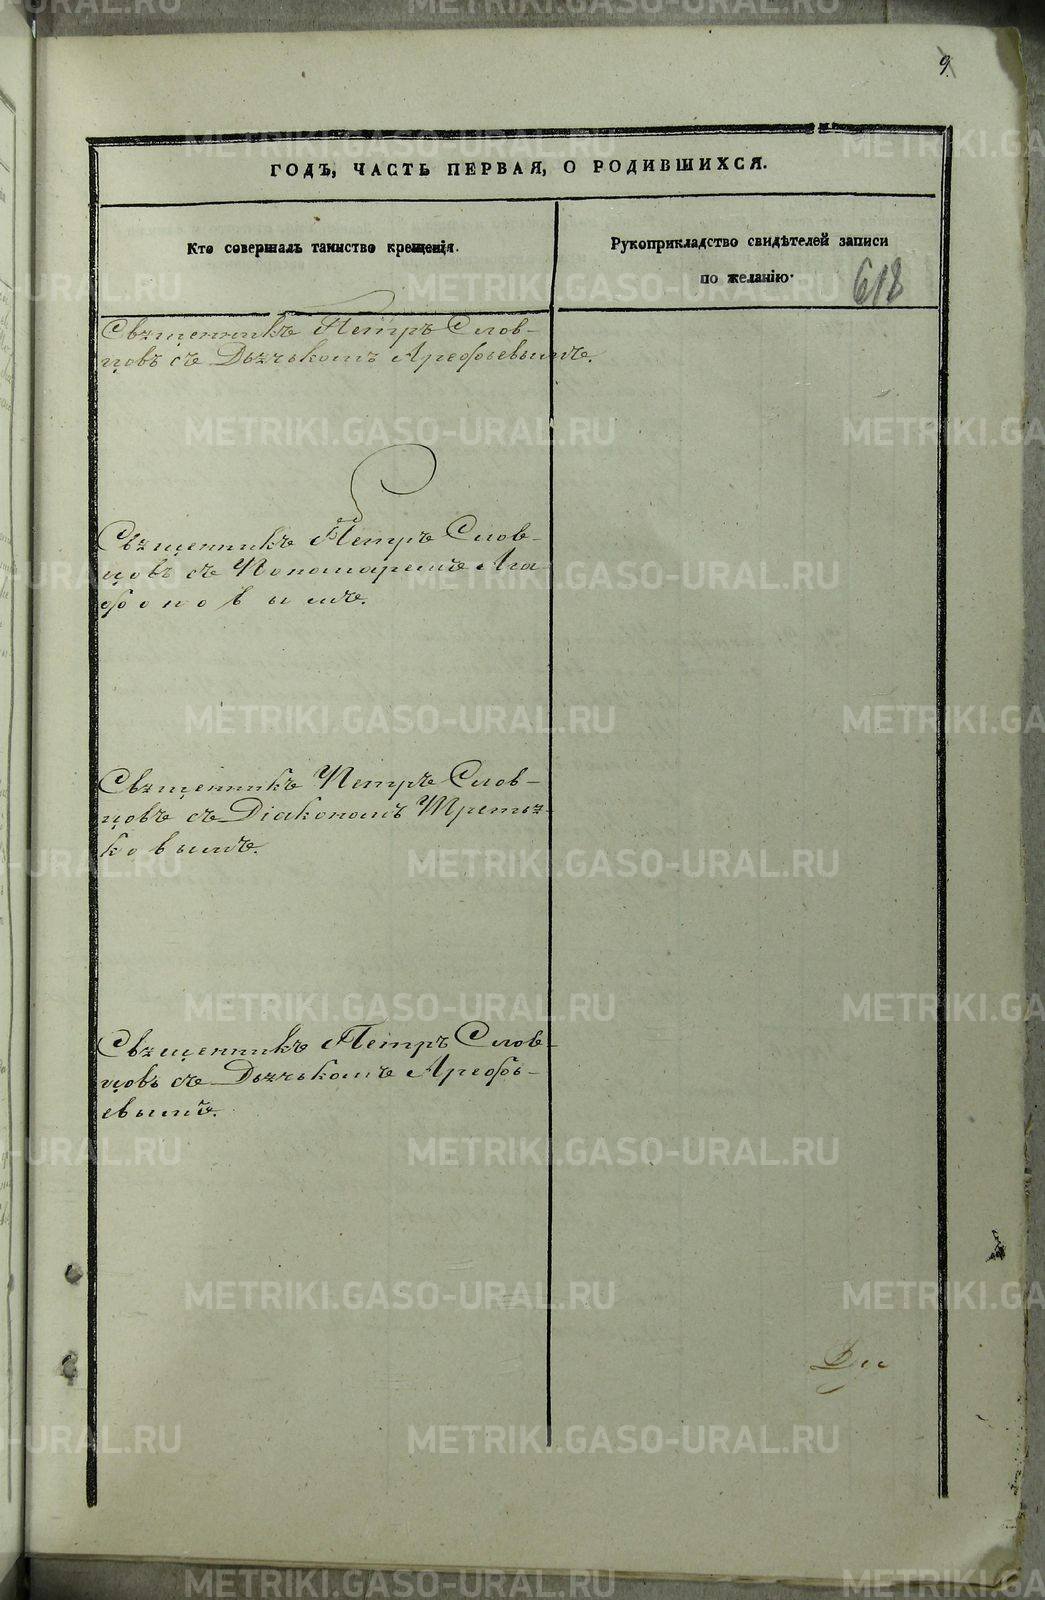 9.
ГОДЪ, ЧАСТЬ ПЕРВАЯ, О РОДИВШИХСЯ.
Кто совершалъ таинство крещенія.
Рукоприкладство свидѣтелей записи
по желанію.
618
Священникъ Петръ Слов-
цовъ съ Дьячькомъ Арефьевымъ.
Священникъ Петръ Слов-
цовъ съ Пономаремъ Ага-
фоновымъ.
Священникъ Петръ Слов-
цовъ съ Діакономъ Третья-
ковымъ.
Священникъ Петръ Слов-
цовъ съ Дьячькомъ Арефь-
евымъ.
METRIKI.GASO-URAL.RU